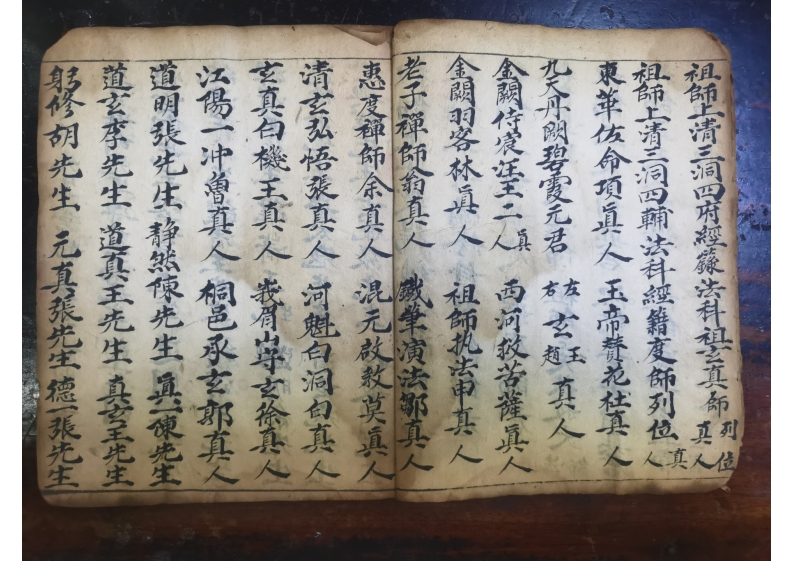 祖師上清三洞四府經籙法科祖玄真師真人列位
祖師上清三洞四輔法科經籍度師列位真人
東華佐命項眞人 玉帝贊花杜真人
九天丹闕碧霞元君 左右玄玉趙真人
金闕侍宸汪王二眞人 西河救苦薩眞人
金闕羽客林眞人 祖師执法申真人
老子禪師翁真人 鐵筆演法鄒真人
惠度禪師余真人 混元啟教莫眞人
清玄弘悟張真人 河魁白洞白真人
玄真白機王真人 我眉山守玄徐真人
江陽一冲曾真人 桐邑承玄郭真人
道明張先生 靜然陳先生 眞一陳先生
道玄李先生 道真王先生 真玄王先生
躬修胡先生 元真張先生 德一張先生